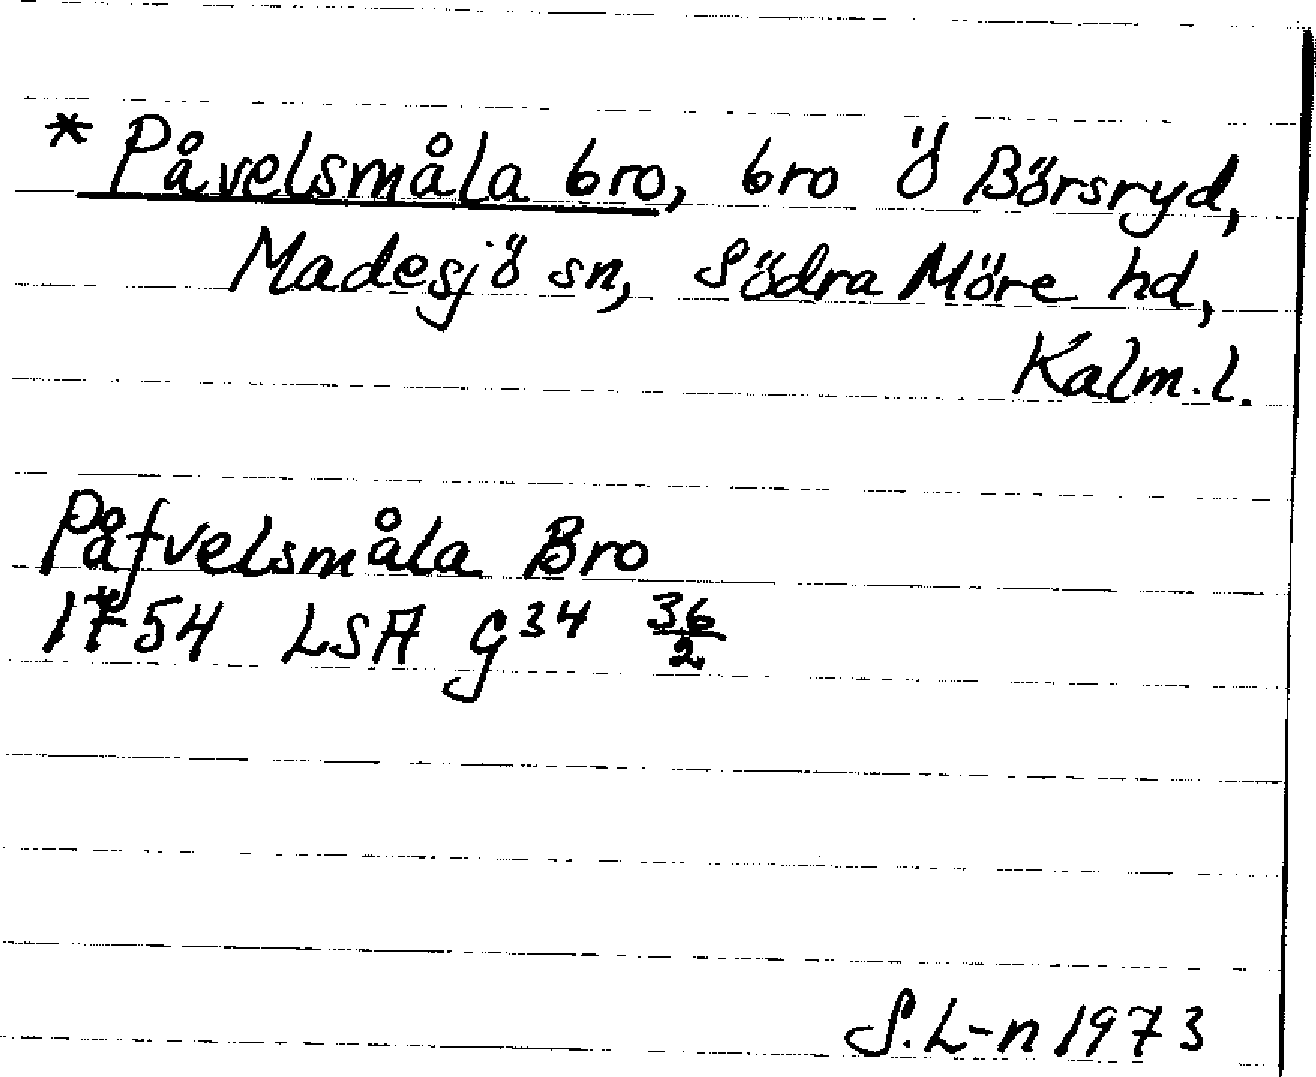 * Påvelsmåla bro, bro Ö Börsryd,
Madesjö sn, Södra Möre hd,
Kalm. l.
Påfvelsmåla Bro
1754 LSA G34 36/2
S. L-n 1973